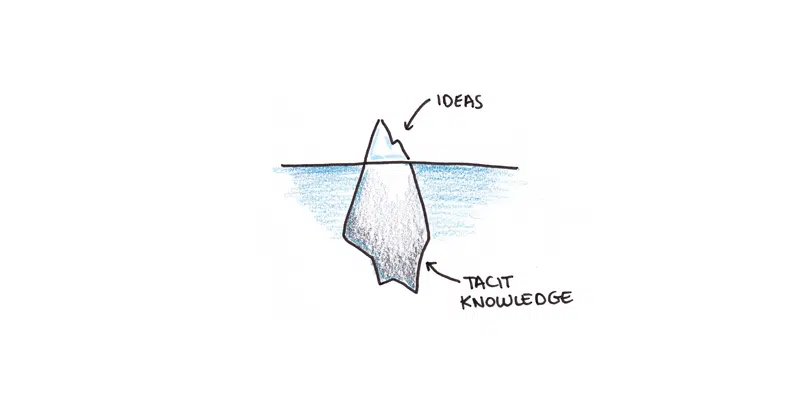 IDEAS
TACIT
KNOWLEDGE